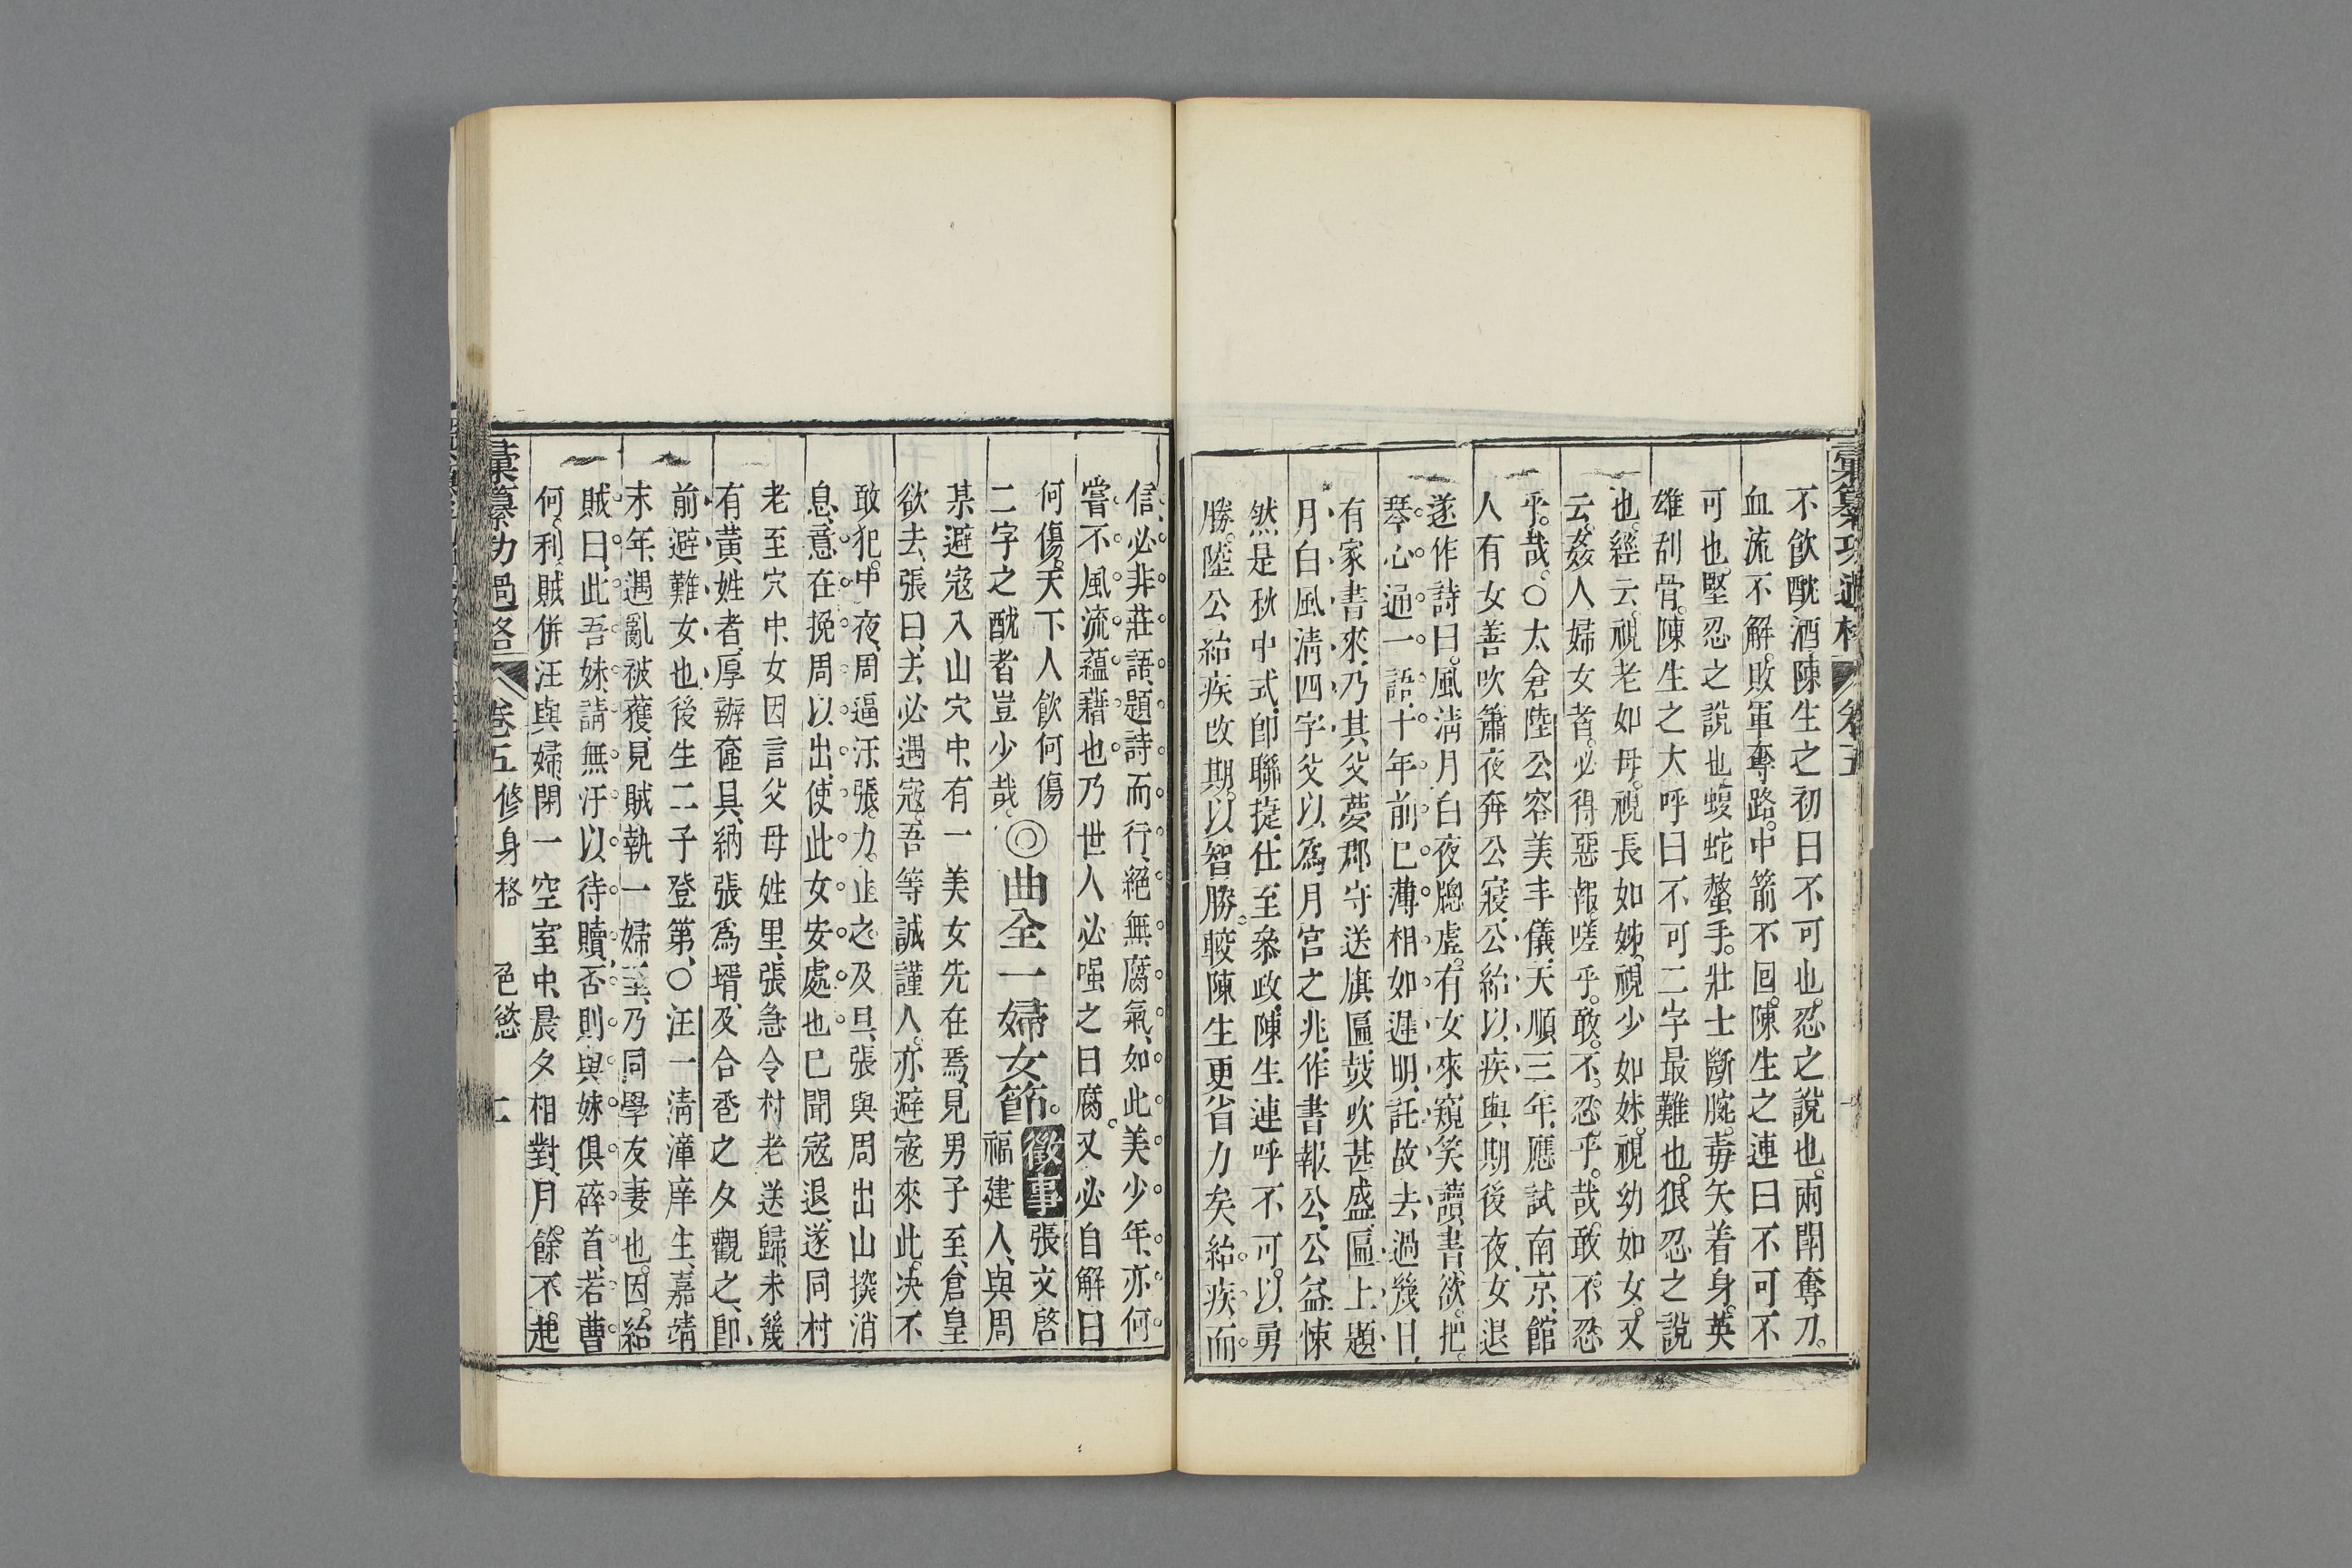 彙纂功過格 卷五
不飲酖酒陳生之初曰不可也。忍之說也。兩閗奪刀。
血流不解。敗軍奪路。中箭不回。陳生之連曰不可不
可也。堅忍之說也。蝮蛇螫手。壯士斷腕。毒矢着身。英
雄刮骨。陳生之大呼曰不可二字最難也。狠忍之說
也。經云。視老如母。視長如姊。視少如妹。視幼如女。又
云。姦人婦女者。必得惡報。嗟乎。敢。不。忍。乎。哉。敢不忍
乎。哉。○太倉陸公容美丰儀、天順三年、應試南京、館
人有女善吹簫、夜奔公寢、公紿以疾、與期後夜、女退
遂作詩曰。風淸月白夜牕虛。有女來窺笑讀書。欲。把。
琴。心。通。一。語。十。年。前。已。薄。相。如。遲明、託故去、過幾日、
有家書來、乃其父夢郡守送旗匾、鼓吹甚盛、匾上題
月白風淸四字、父以爲月宮之兆、作書報公、公益悚
然、是秋中式、卽聯捷、仕至叅政、陳生連呼不可。以勇
勝。陸公紿疾改期。以智勝。較陳生更省力矣。紿。疾。而。
信、必非莊語、題詩而行、絕無腐氣、如此美少年、亦何
嘗不風流蘊藉也乃世人必嗤之曰腐。又必自解曰
何傷。天下人飲何傷
二字之酖者豈少哉。
◎曲全一婦女節。
徵事
張文啓
福建人、與周
某避寇入山穴中、有一美女先在焉、見男子至、倉皇
欲去、張曰、去必遇寇。吾等誠謹人。亦避寇來此。决不
敢犯。中夜、周逼汙張。力。止。之。及旦、張與周出山採消
息、意在挽周以出、使此女安處也已聞寇退、遂同村
老至穴中、女因言父母姓里、張急令村老送歸、未幾
有黃姓者、厚辦奩具、納張爲壻、及合卺之夕觀之、卽、
前避難女也後生二子登第、○汪一淸漳庠生、嘉靖
末年、遇亂被獲、見賊執一婦至、乃同學友妻也。因。紿
賊曰、此吾妹、請無汙以待贖、否則與妹俱碎首、若曹
何。利。賊併汪與婦閉一空室中、晨夕相對、月。餘。不。起
彙纂功過格 卷五 修身格 色慾 二